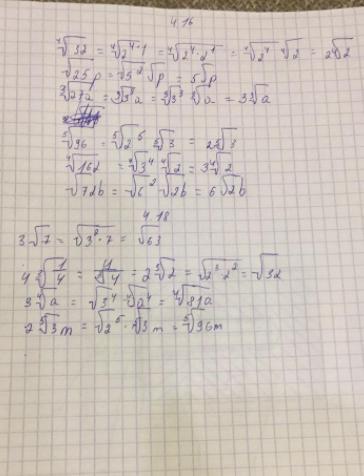 4.16
⁴√32 = ⁴√2⁴·¹ = ⁴√2⁴·2¹ = ⁴√2⁴ ⁴√2 = 2⁴√2
√25p = √5² √p = 5√p
³√27a = ³√3³a = ³√3³ ³√a = 3³√a
⁵√96 = ⁵√2⁵ ⁵√3 = 2⁵√3
⁴√162 = ⁴√3⁴ ⁴√2 = 3⁴√2
√72b = √6² √2b = 6√2b
4.18
3√7 = √3²·7 = √63
3⁴√a = √3⁴ · ⁴√a⁴ = ⁴√81a
2⁵√3m = √2⁵ · ⁵√3m = ⁵√96m